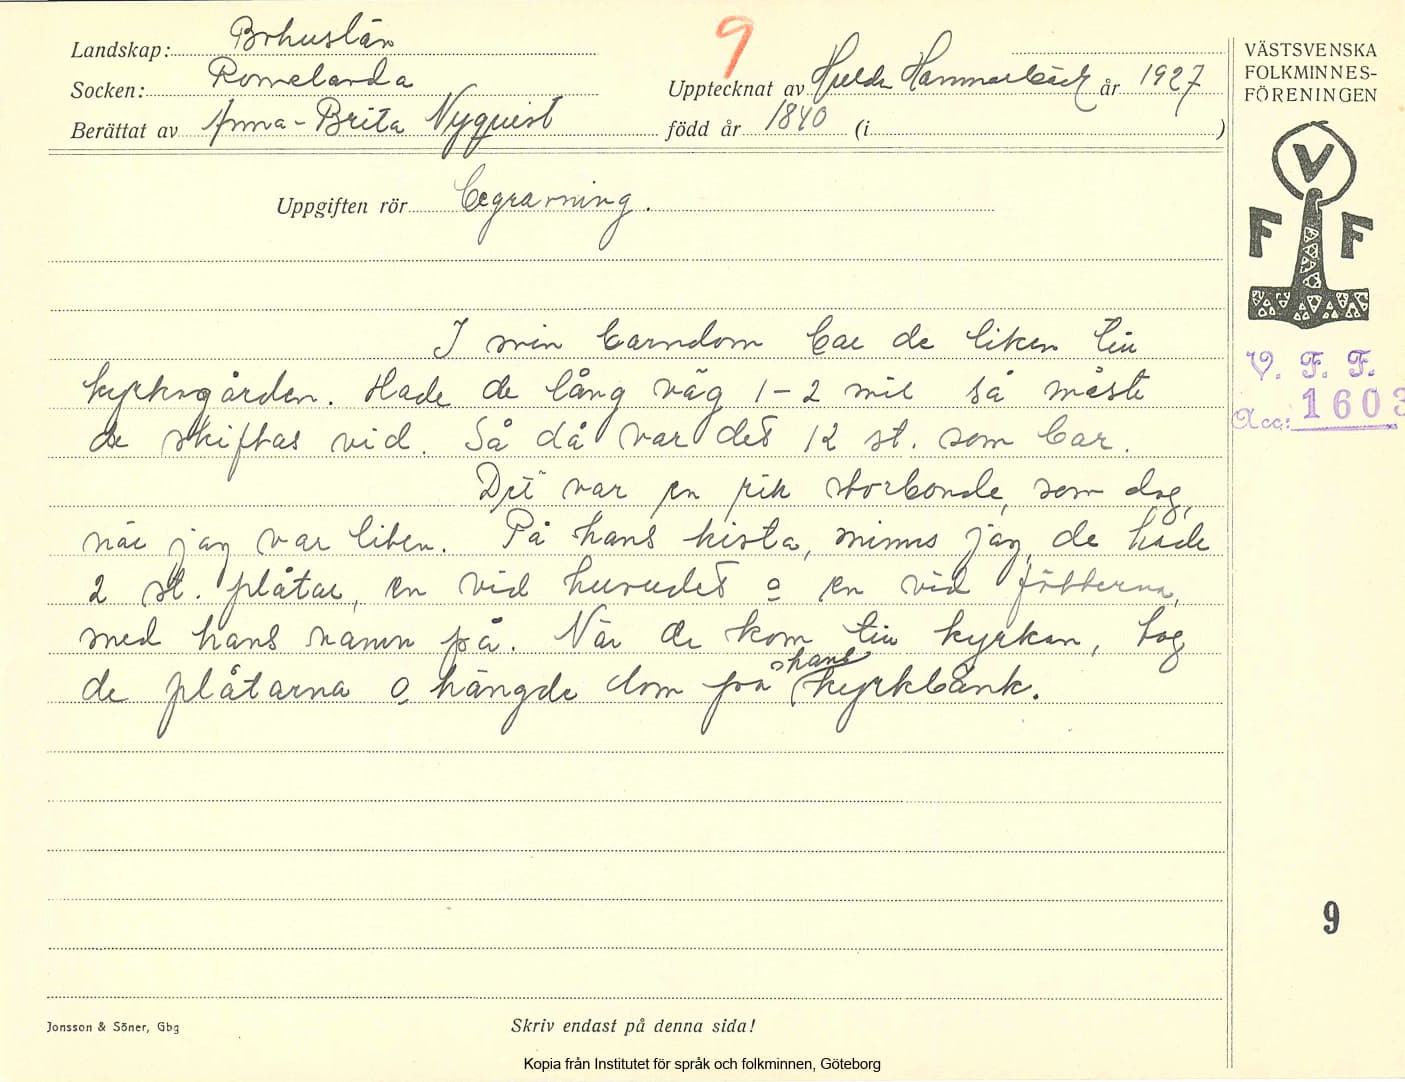 Landskap: Bohuslän
9
Socken: Romelanda
Upptecknat av Hulda Hammarbäck år 1927
Berättat av Anna-Brita Nyquist
född år 1840 (i )
VÄSTSVENSKA
FOLKMINNES-
FÖRENINGEN
V
F F
V. F. F.
Acc: 1603
Uppgiften rör begravning.
I min barndom bar de liken till
kyrkogården. Hade de lång väg 1-2 mil så måste
de skiftas vid. Så då var det 12 st. som bar.
Det var en rik storbonde, som dog,
när jag var liten. På hans kista, minns jag, de hade
2 st. plåtar, en vid huvudet o en vid fötterna,
med hans namn på. När de kom till kyrkan, tog
de plåtarna o hängde dom på hans kyrkbänk.
9
Jonsson & Söner, Gbg
Skriv endast på denna sida!
Kopia från Institutet för språk och folkminnen, Göteborg